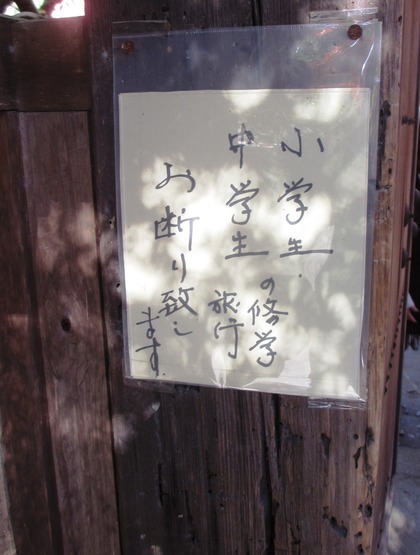 小学生・
中学生
の修学
旅行
お断り致し
ます.